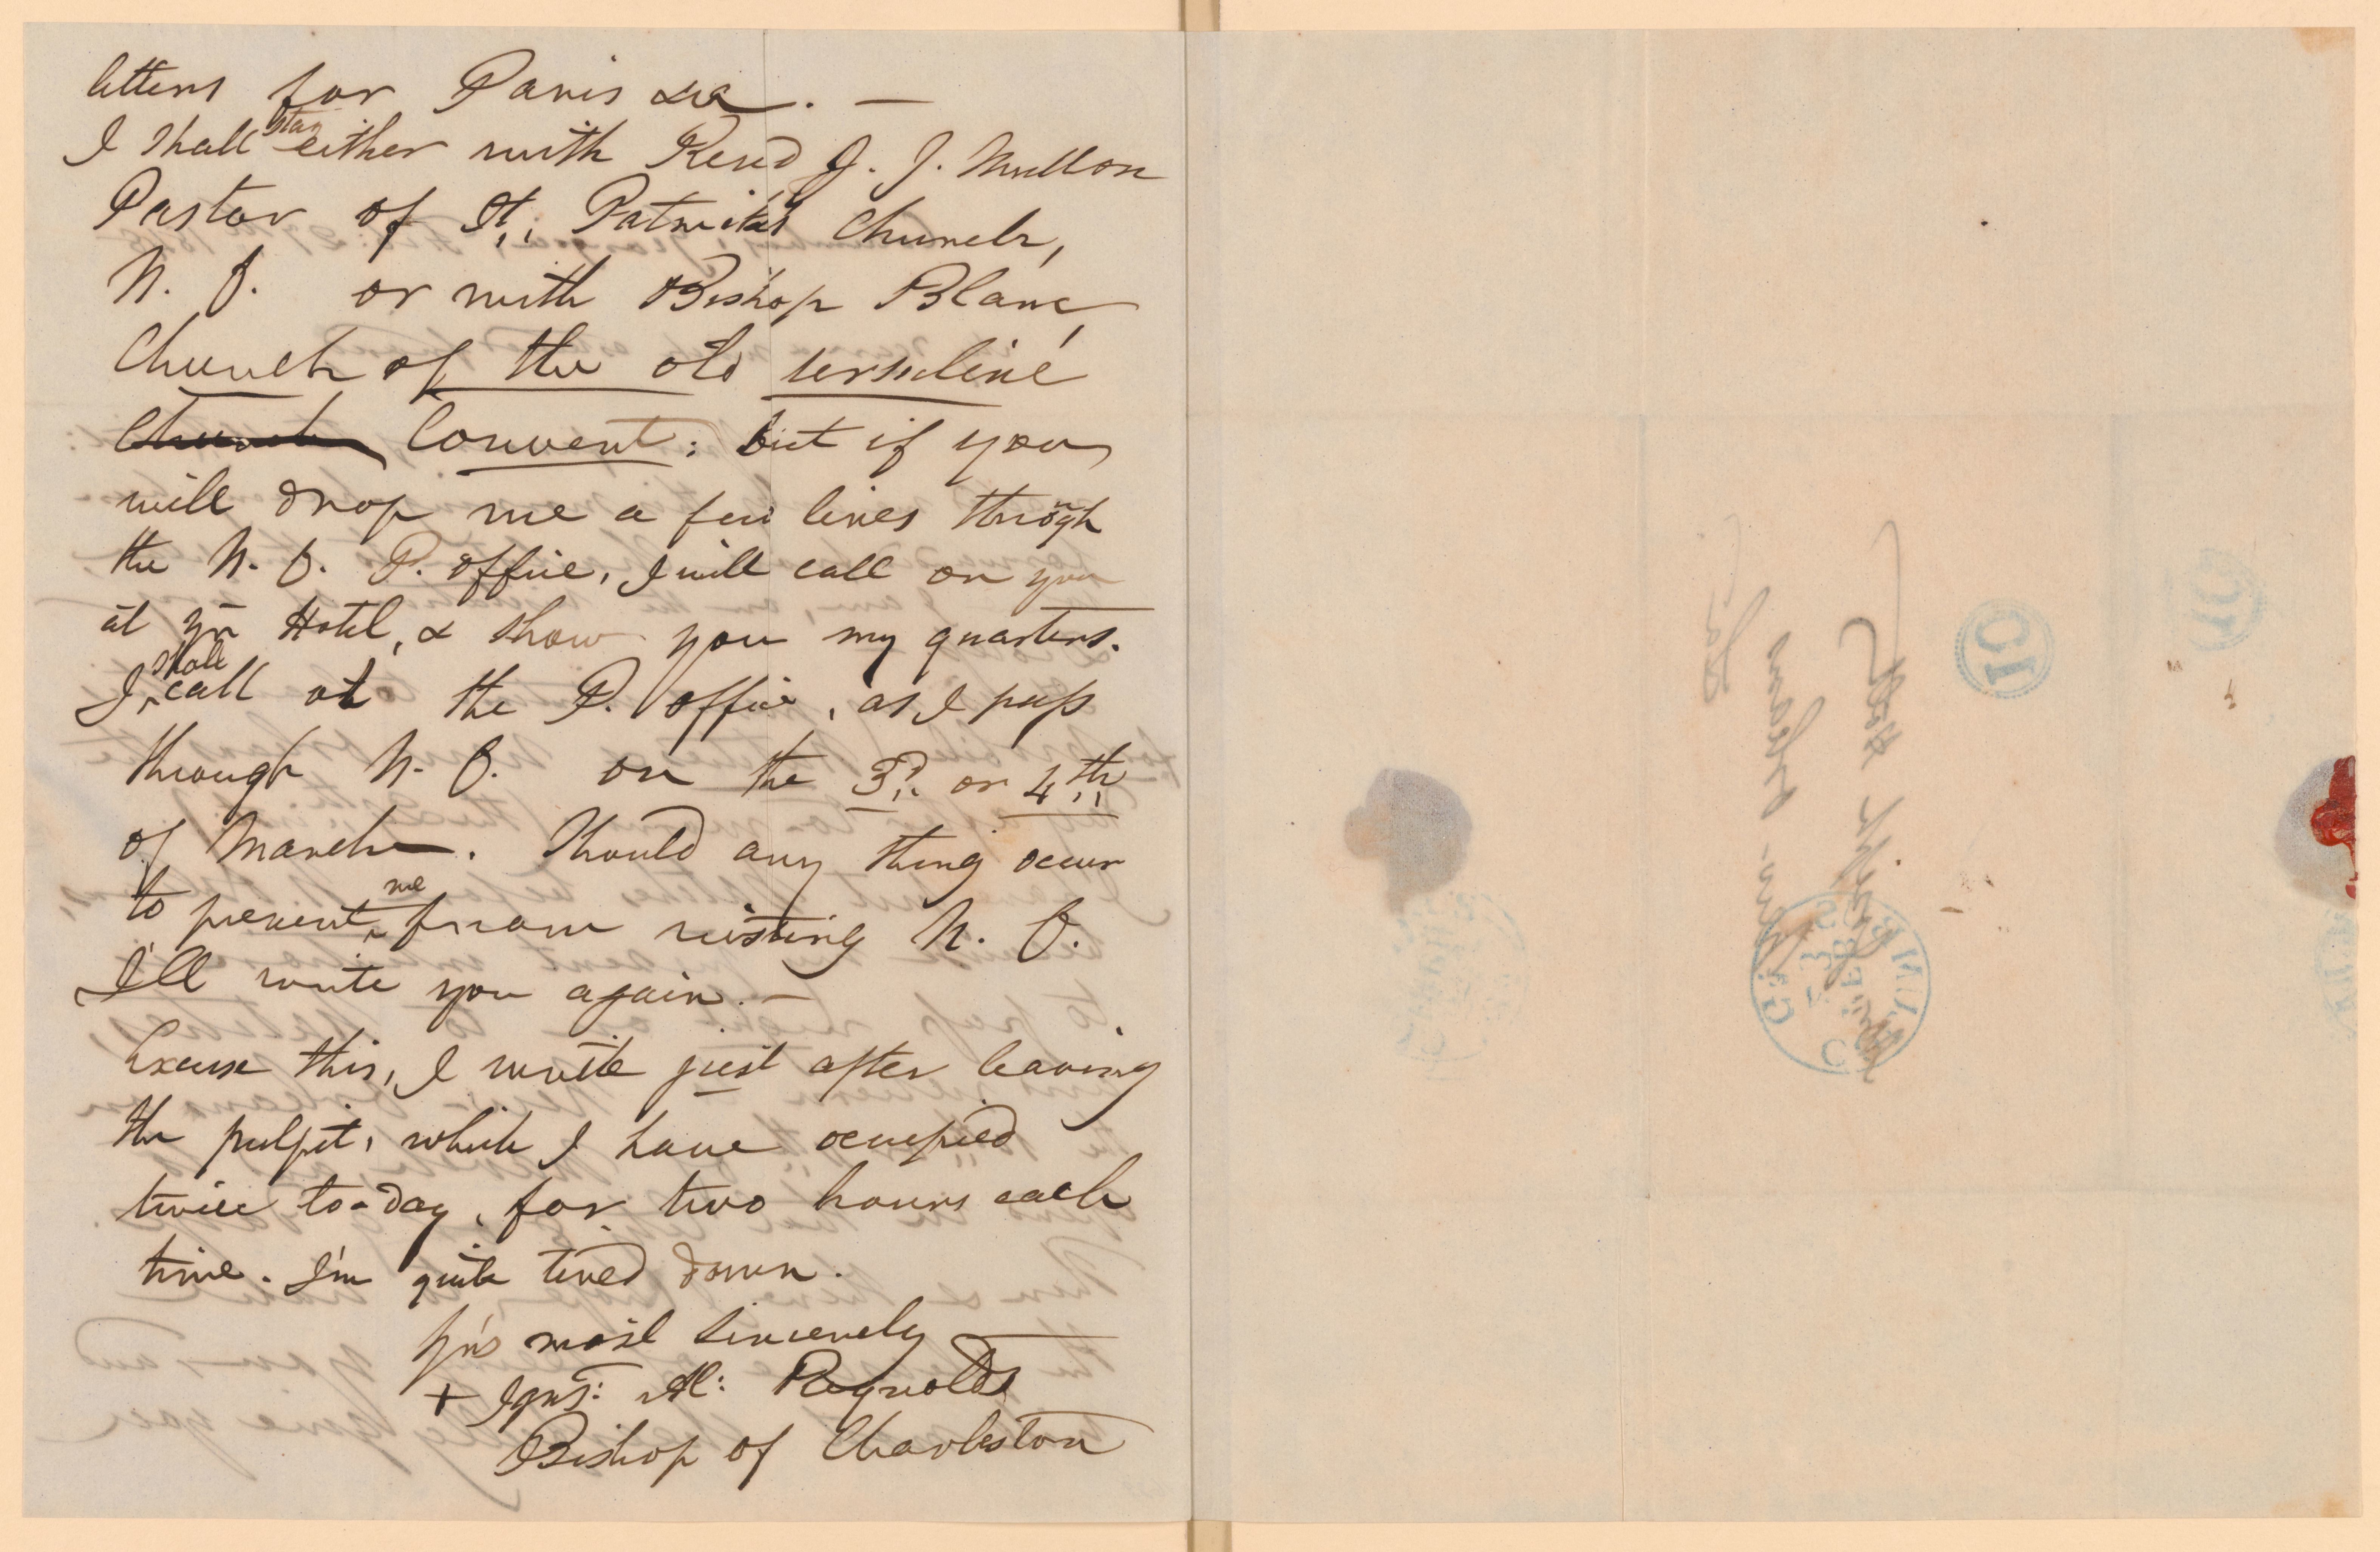 letters for Paris &c. —
I shall stay either with Revd J. J. Mullon
Pastor of St. Patrick's Church,
N. O. or with Bishop Blanc,
Church of the old ursuline
Church Convent: but if you
will drop me a few lines throgh
the N. O. P. office, I will call on you
at yr Hotel, & show you my quarters.
I shall call at the P. office, as I pass
through N. O. on the 3d. or 4th
of March. Should any thing occur
to prevent me from visiting N. O.
I'll write you again. —
Excuse this, I write just after leaving
the pulpit, which I have occupied
twice to-day, for two hours each
time. I'm quite tired down.
Yrs most sincerely
+ Igns: Al: Reynolds
Bishop of Charleston
10